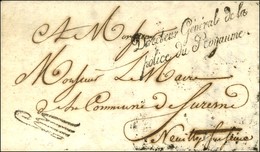 A Monsieur
Directeur Général de la
Police du Royaume.
Monsieur Le Maire
de la Commune de Suresne
Neuilly sur Seine